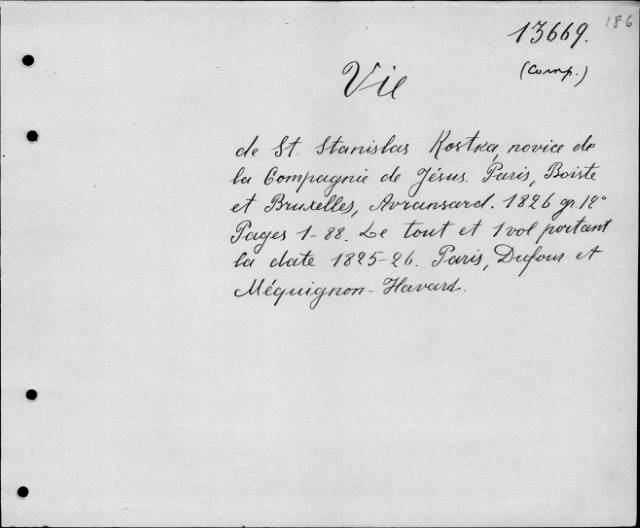 186
13669.
(Comp.)
Vie
de St. Stanislas Kostka, novice de
la Compagnie de Jésus. Paris, Boiste
et Bruxelles, Avransard. 1826 gr. 12°
Pages 1-88. Le tout et 1 vol, portant
la date 1825-26. Paris, Dufour et
Méquignon-Havard.